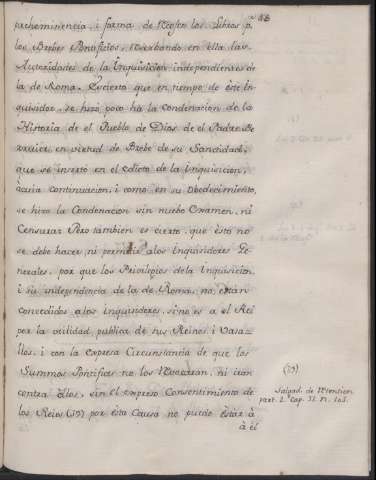 58
preheminencia, i forma de Recoser los Libros p.
los Brebes Pontificios, Recabando en ella las
Autoridades de la Inquisicion independientes de
la de Roma. Es cierto que en tiempo de éste In-
quisidor, se hizo poco há la Condenacion de la
Historia de el Pueblo de Dios de el Padre Be-
rruier en virtud de Brebe de su Santidad,
que se inserto en el edicto de la Inquisicion,
á su continuacion, i como en su Obedecimiento,
se hizo la Condenacion sin nuebo Examen, ni
Censura: Pero tambien es cierto, que ésto no
se debe hacer, ni permitir a los Inquisidores Ge-
nerales, por que los Privilegios de la Inquisicion,
i su independencia de la de Roma, no están
concedidos a los Inquisidores, si no es a el Rei
por la utilidad publica de sus Reinos i Vasa-
llos, i con la expresa Circunstancia de que los
Summos Pontifices no los Revocarán, ni irán
contra éllos, sin el expreso Consentimiento de
los Reies (19) por ésta Causa no puede éstár á
á él
(19)
Salgad. de Retencion
part. 2. Cap. 31. n. 103.